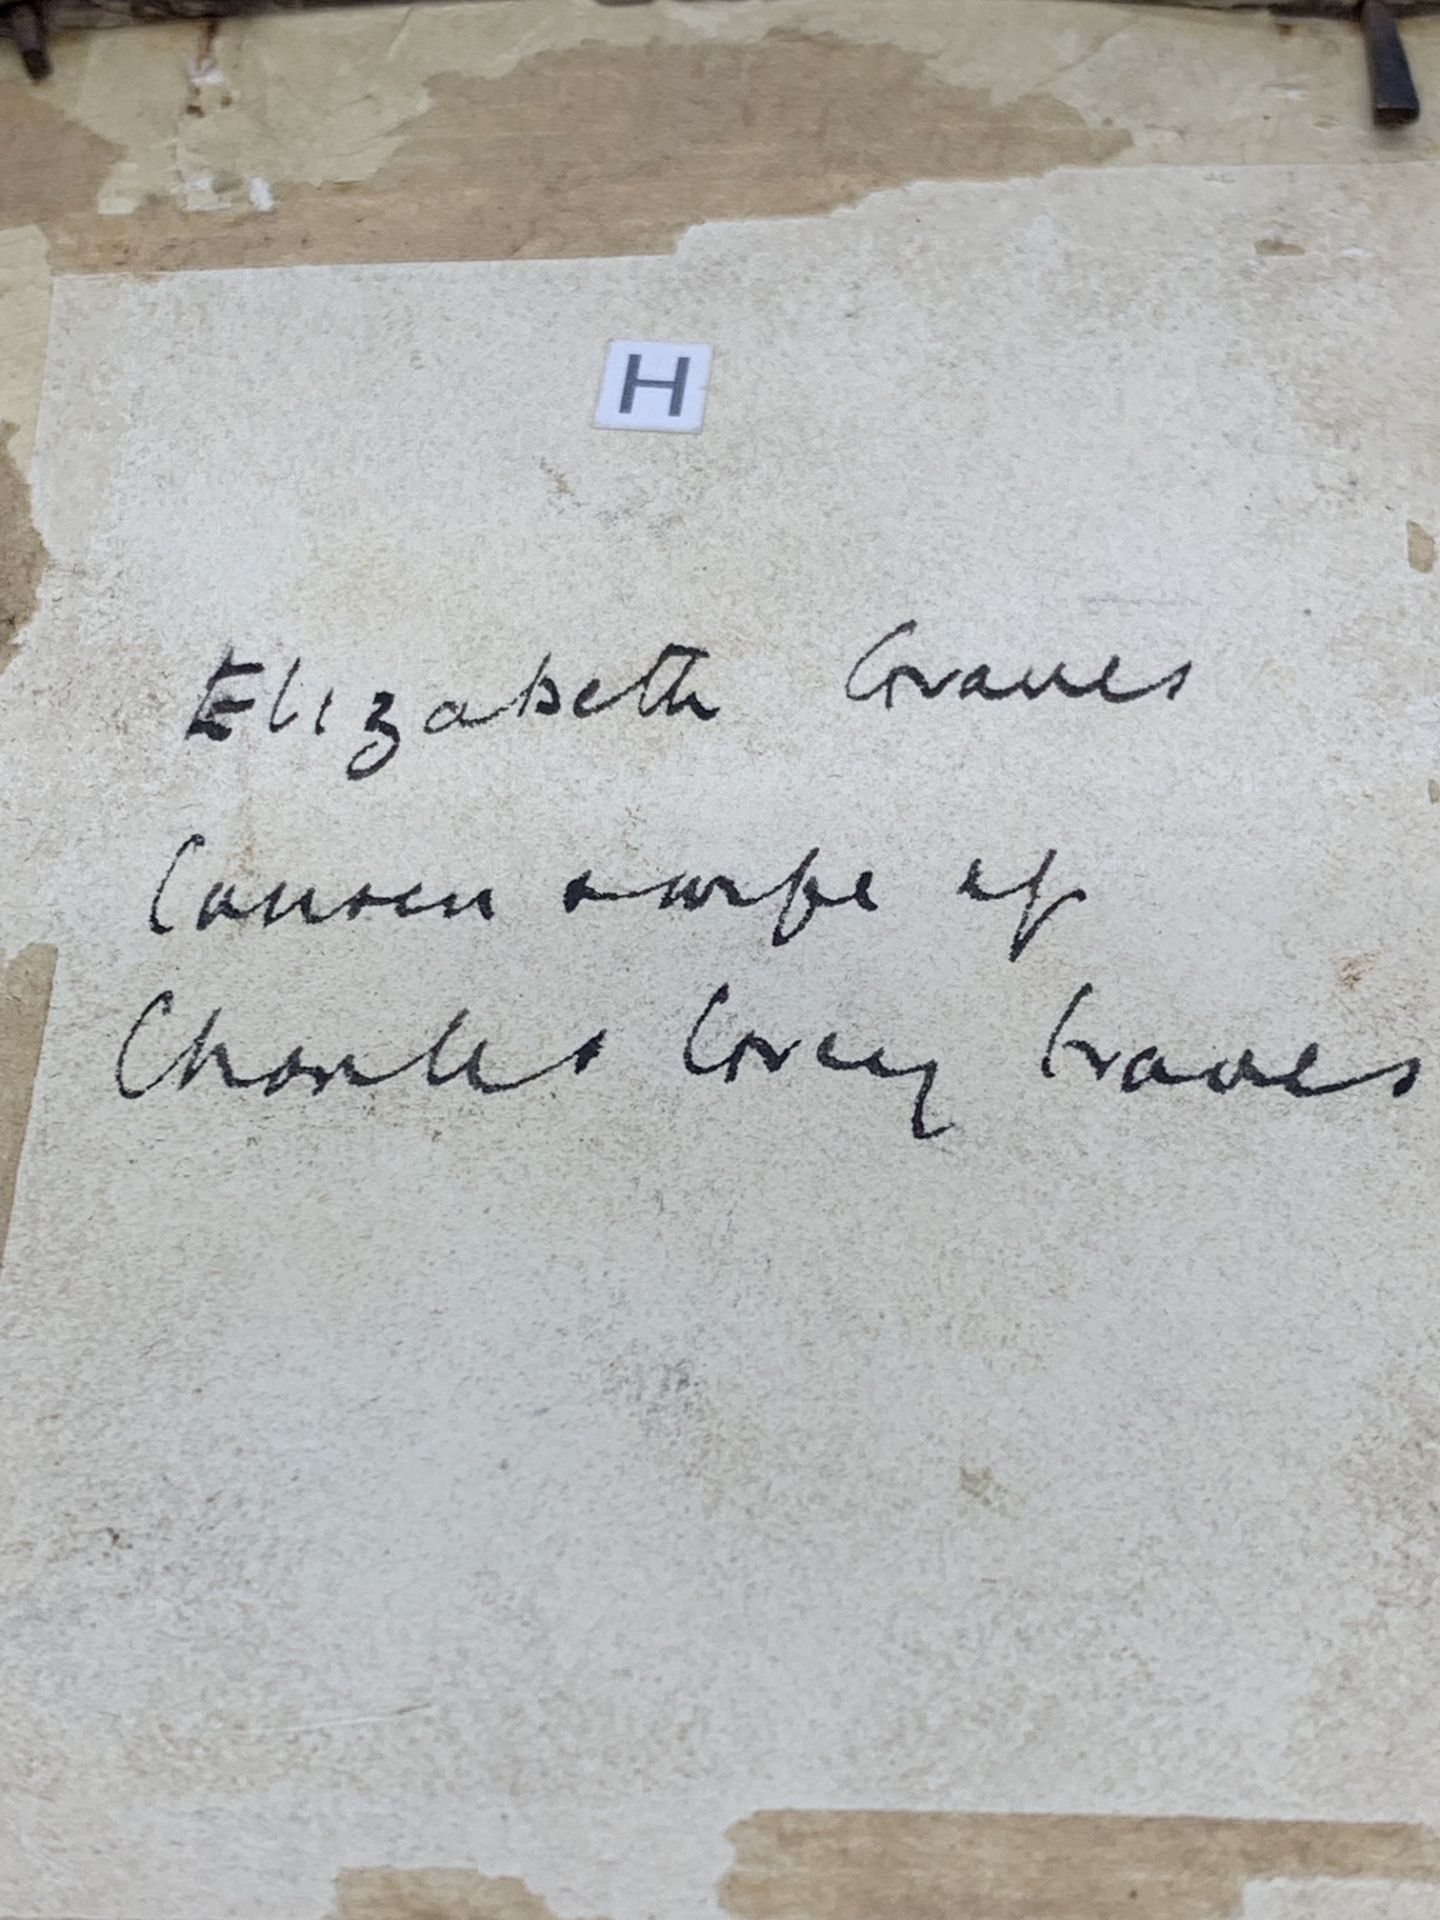 H
Elizabeth Graves
Cousin & wife of
Charles Corey Graves